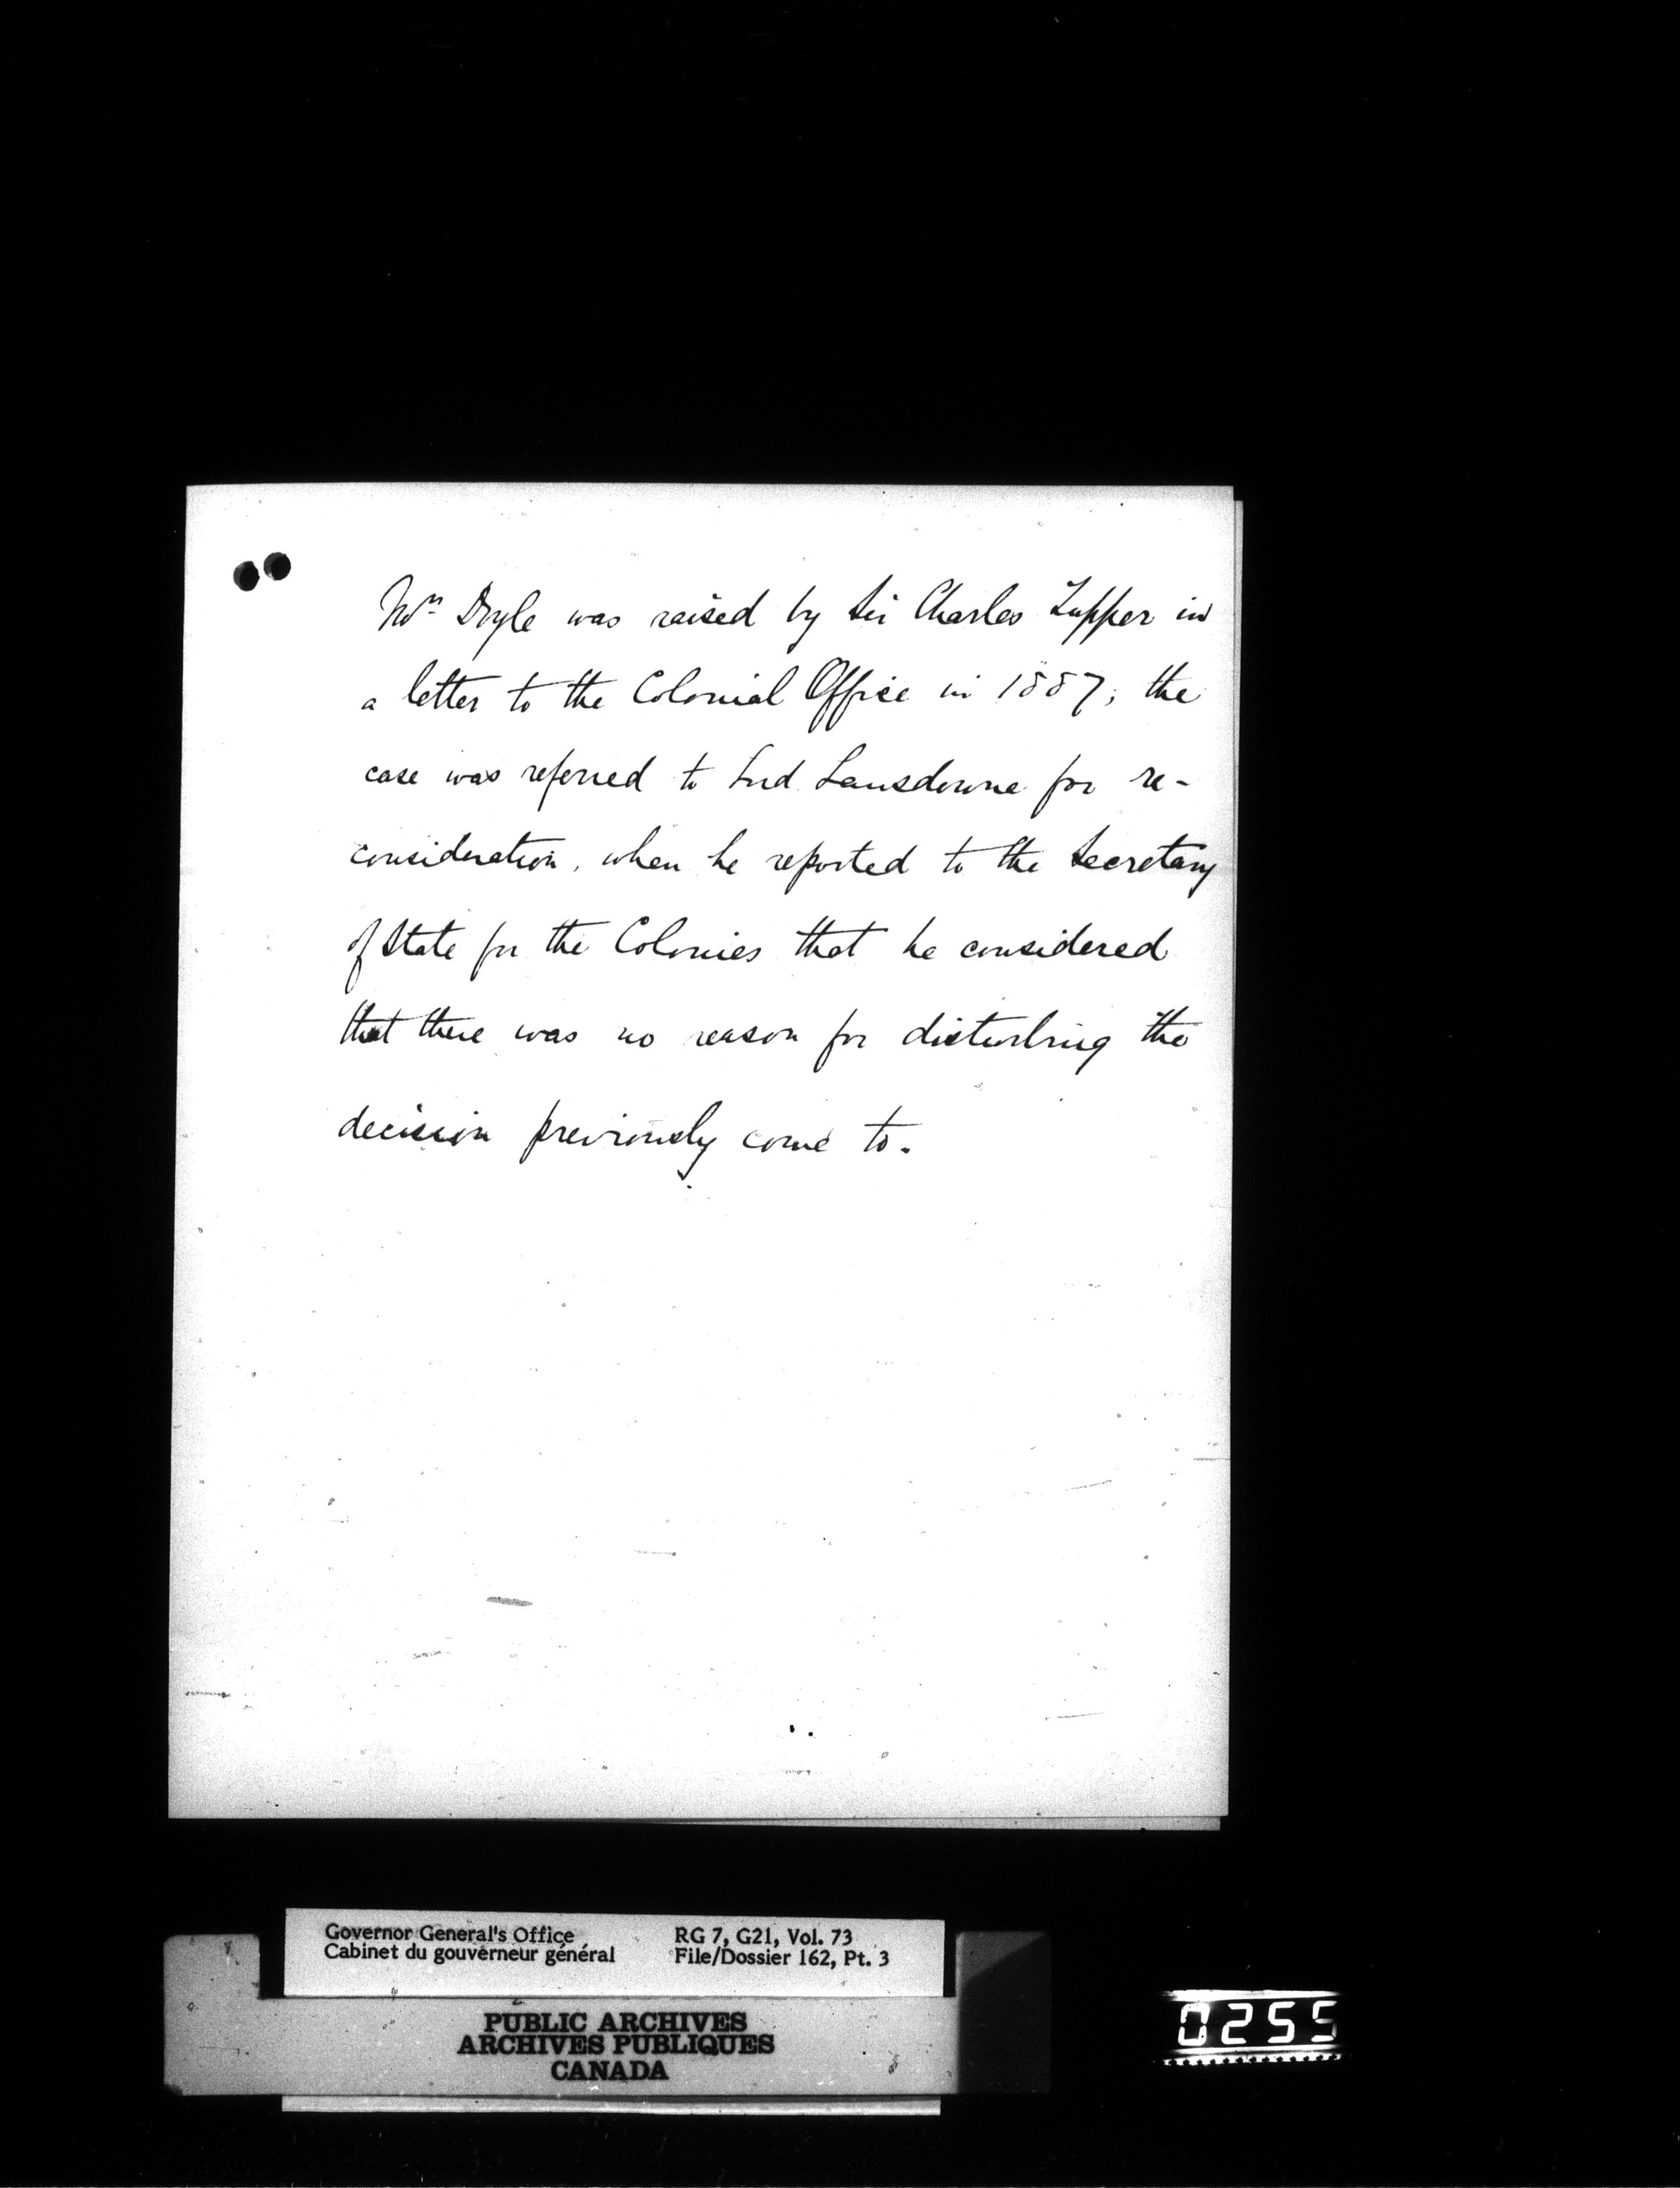 Wm Doyle was raised by Sir Charles Tupper in
a letter to the Colonial Office in 1887; the
case was referred to Lord Lansdowne for re-
consideration, when he reported to the Secretary
of State for the Colonies that he considered
that there was no reason for disturbing the
decision previously come to.
Governor General's Office
Cabinet du gouverneur général
RG 7, G21, Vol. 73
File/Dossier 162, Pt. 3
PUBLIC ARCHIVES
ARCHIVES PUBLIQUES
CANADA
0255